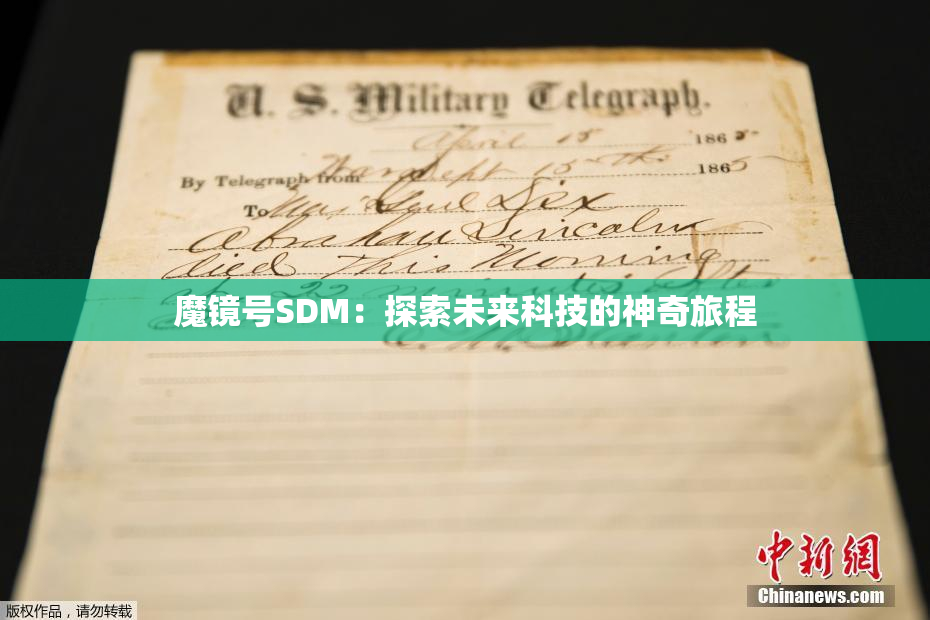 U. S. Military Telegraph.
April 15 1865
By Telegraph from War Dept 15th 1865
To Maj Genl Dix
Abraham Lincoln
died This Morning
at 22 minutes after
魔镜号SDM：探索未来科技的神奇旅程
E. M. Stanton
中新网
Chinanews.com
版权作品，请勿转载